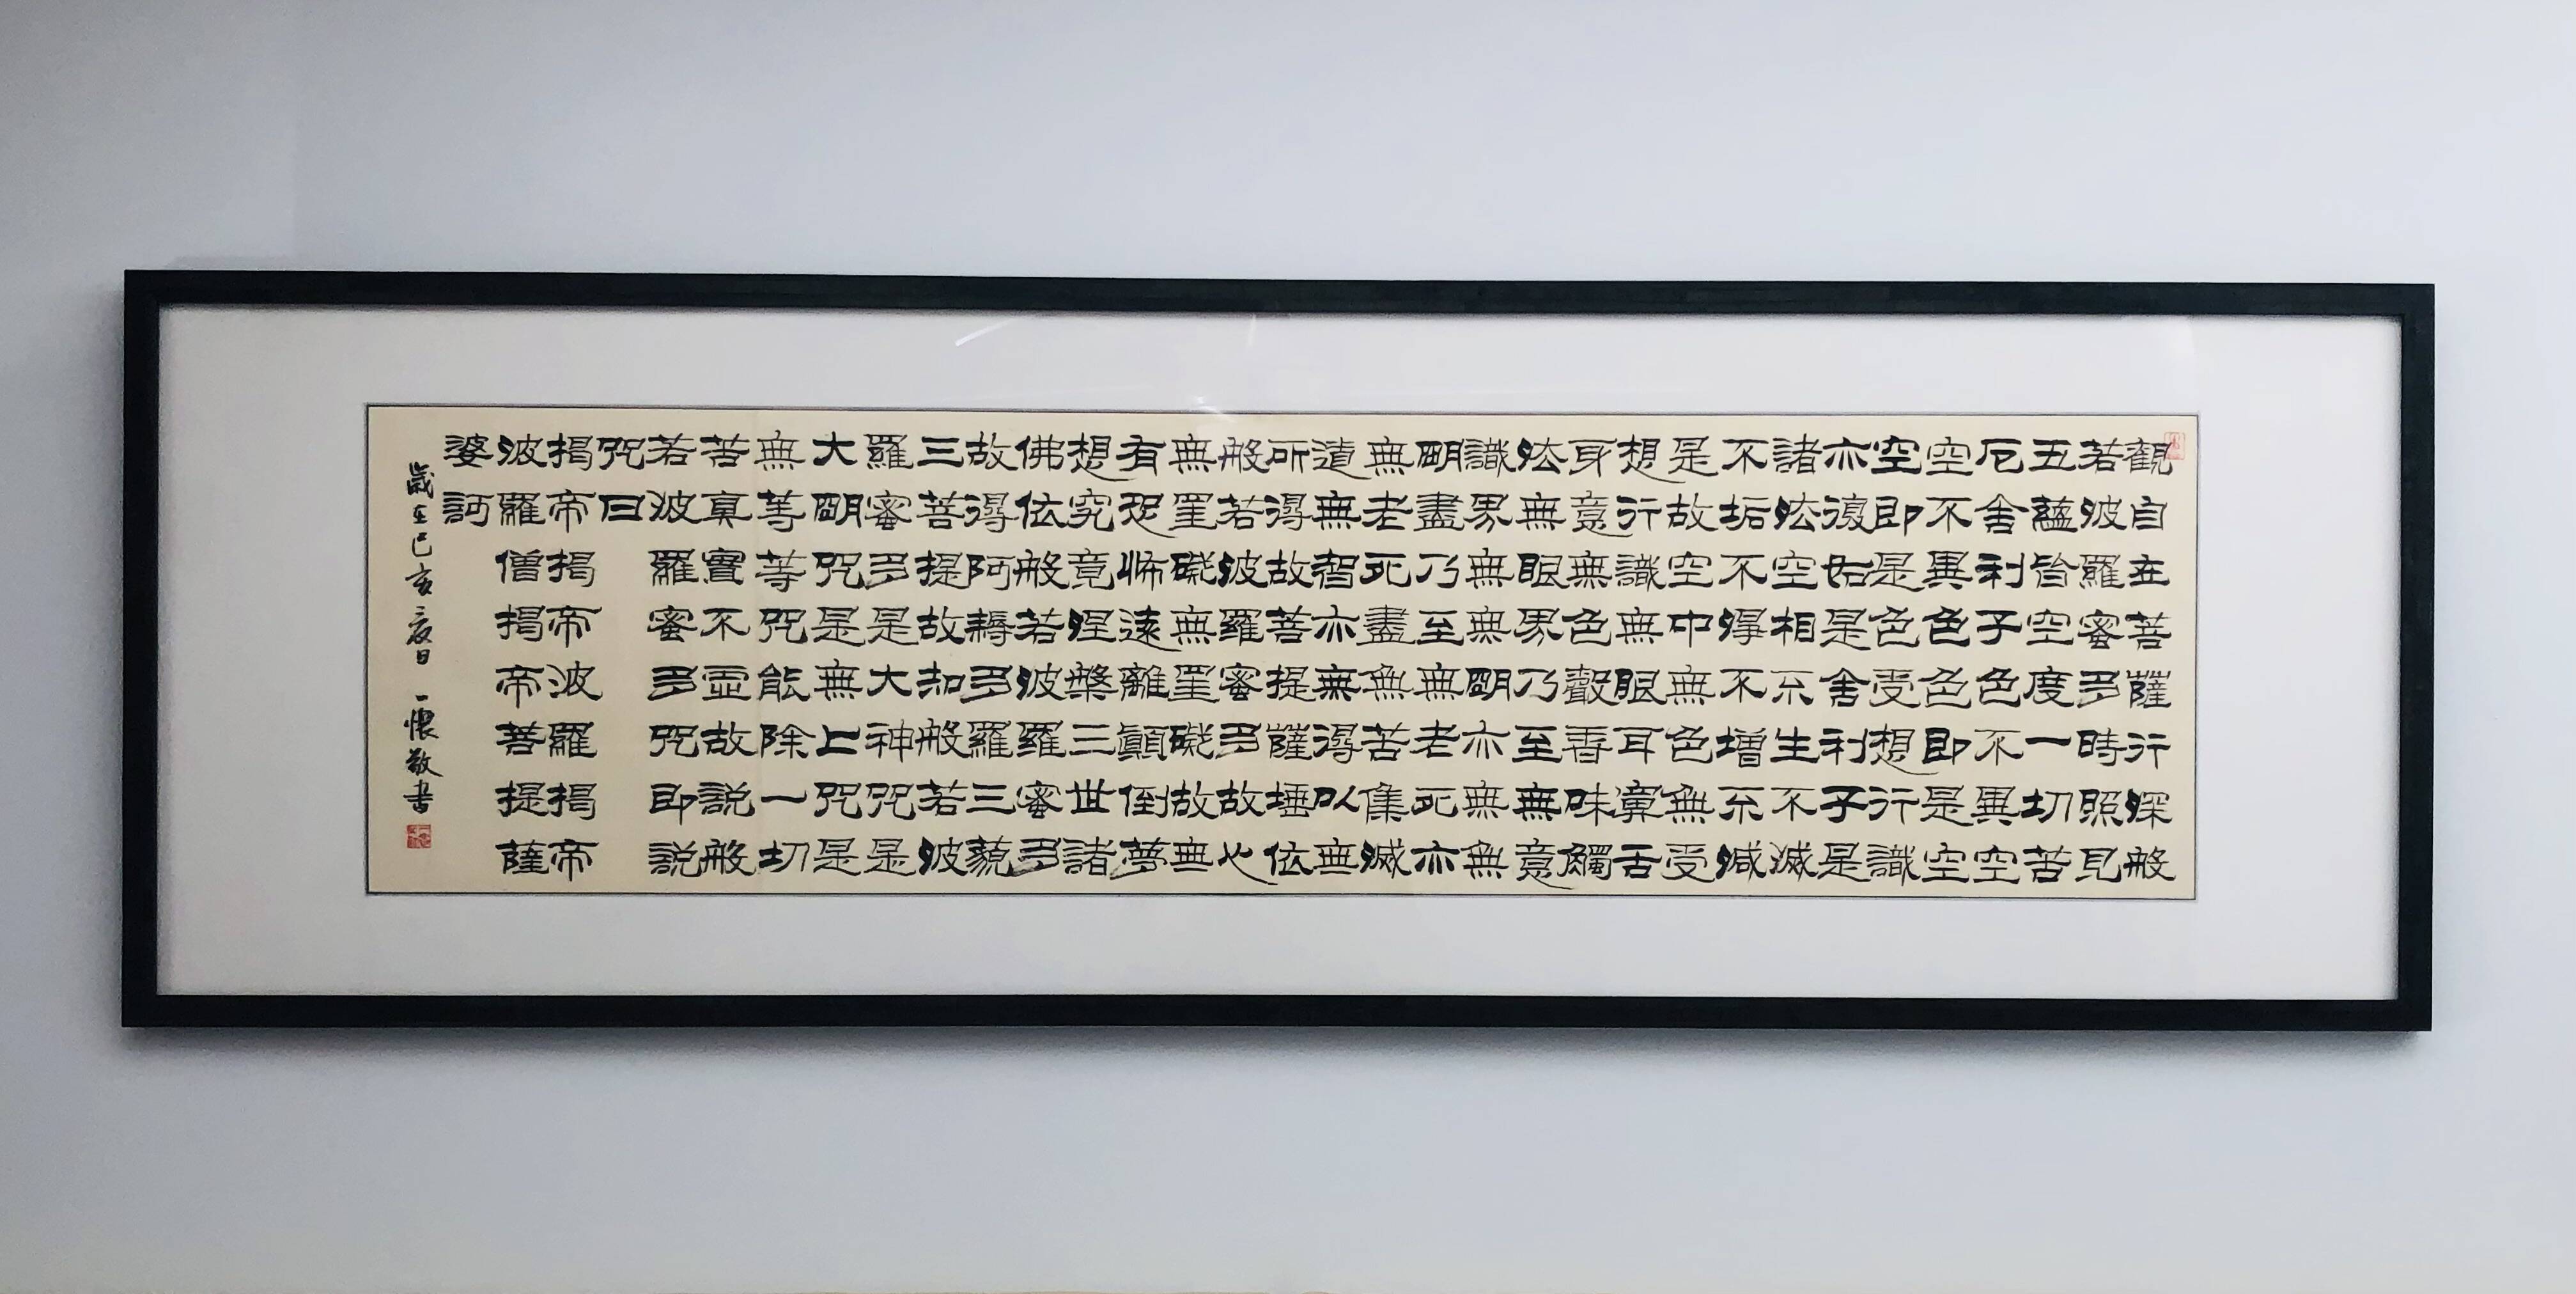 觀自在菩薩行深般
若波羅蜜多時照見
五蘊皆空度一切苦
厄舍利子色不異空
空不異色色即是空
空即是色受想行識
亦復如是舍利子是
諸法空相不生不滅
不垢不淨不增不減
是故空中無色無受
想行識無眼耳鼻舌
身意無色聲香味觸
法無眼界乃至無意
識界無無明亦無無
明盡乃至無老死亦
無老死盡無苦集滅
道無智亦無得以無
所得故菩提薩埵依
般若波羅蜜多故心
無罣礙無罣礙故無
有恐怖遠離顛倒夢
想究竟涅槃三世諸
佛依般若波羅蜜多
故得阿耨多羅三藐
三菩提故知般若波
羅蜜多是大神咒是
大明咒是無上咒是
無等等咒能除一切
苦真實不虛故說般
若波羅蜜多咒即說
咒曰
揭帝揭帝波羅揭帝
波羅僧揭帝菩提薩
婆訶
歲在己亥夏日 一懷敬書